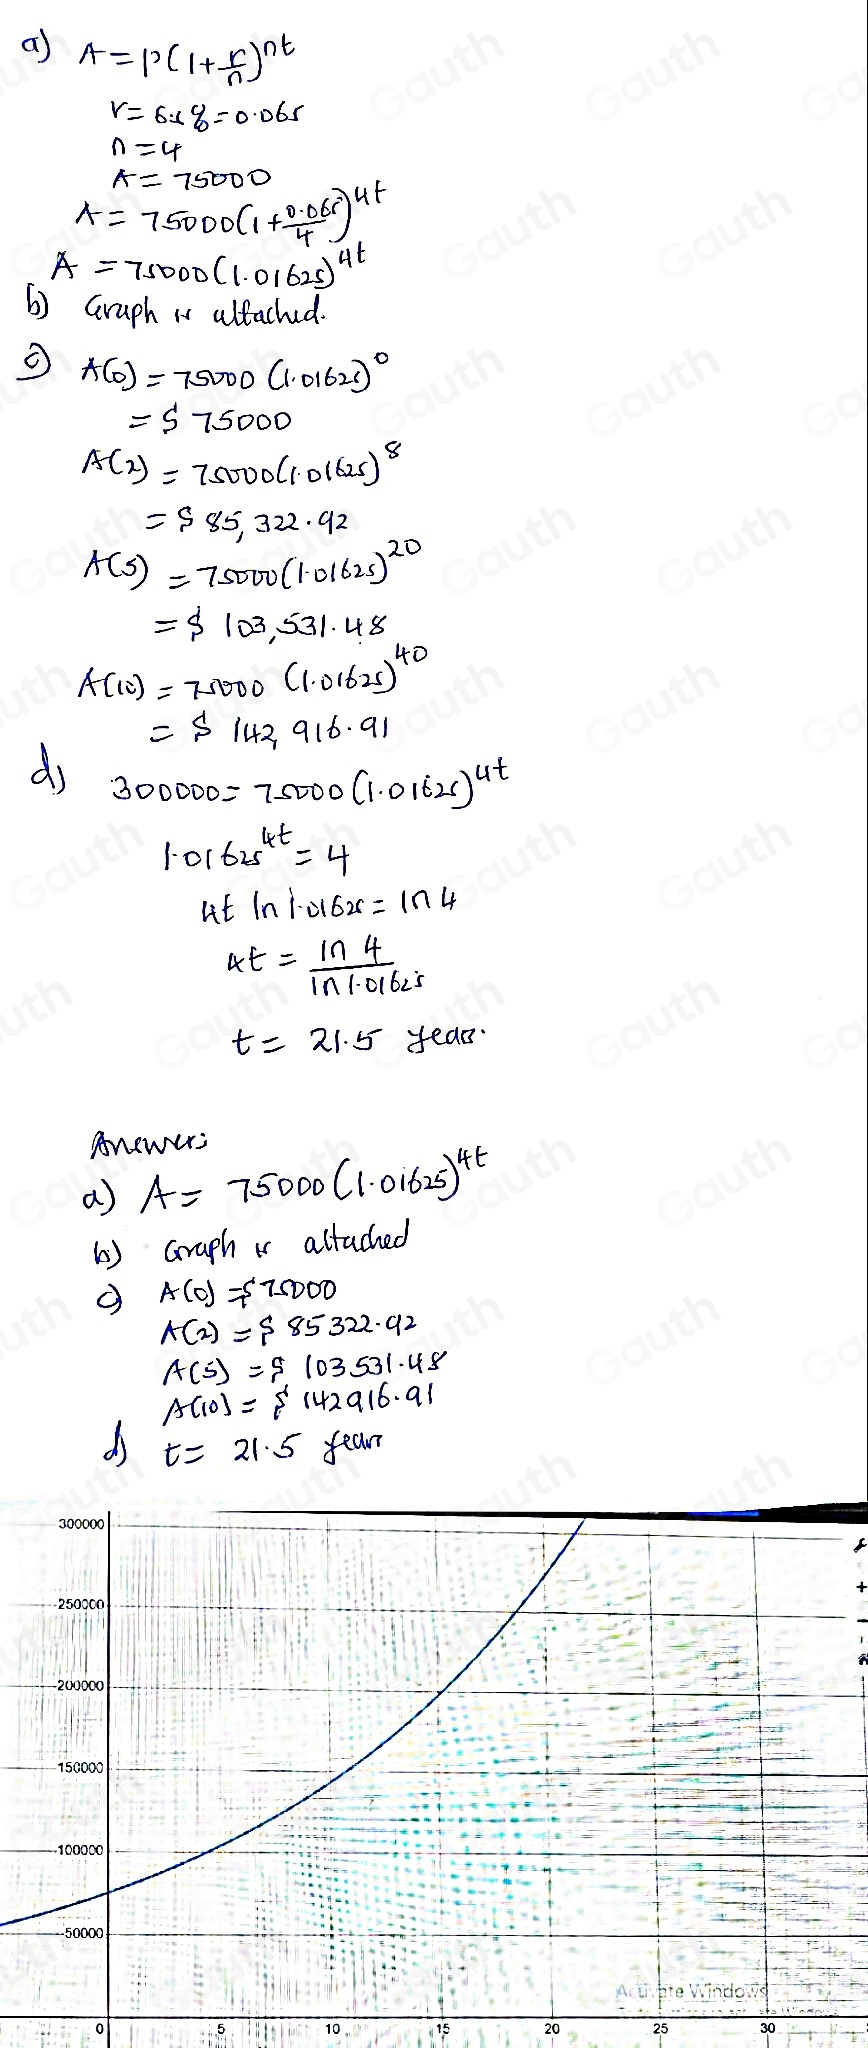 a) A = P(1+r/n)^nt
r = 6.5% = 0.065
n = 4
A = 75000
A = 75000(1+0.065/4)^4t
A = 75000(1.01625)^4t
b) Graph is attached.
c) A(0) = 75000 (1.01625)^0
= $ 75000
A(2) = 75000(1.01625)^8
= $ 85,322.92
A(5) = 75000(1.01625)^20
= $ 103,531.48
A(10) = 75000 (1.01625)^40
= $ 142,916.91
d) 300000 = 75000(1.01625)^4t
1.01625^4t = 4
4t ln 1.01625 = ln 4
4t = ln 4 / ln 1.01625
t = 21.5 years.
Answer:
a) A = 75000(1.01625)^4t
b) Graph is attached
c) A(0) = $75000
A(2) = $ 85322.92
A(5) = $ 103531.48
A(10) = $ 142916.91
d) t = 21.5 years
300000
250000
200000
150000
100000
50000
Activate Windows
0 5 10 15 20 25 30